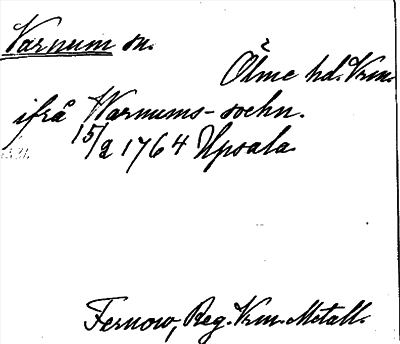 Varnum sn.
Ölme hd. Vrm.
ifrå Warnums-sochn.
15/2 1764 Upsala
Fernow, Reg. Vrm. Metall.